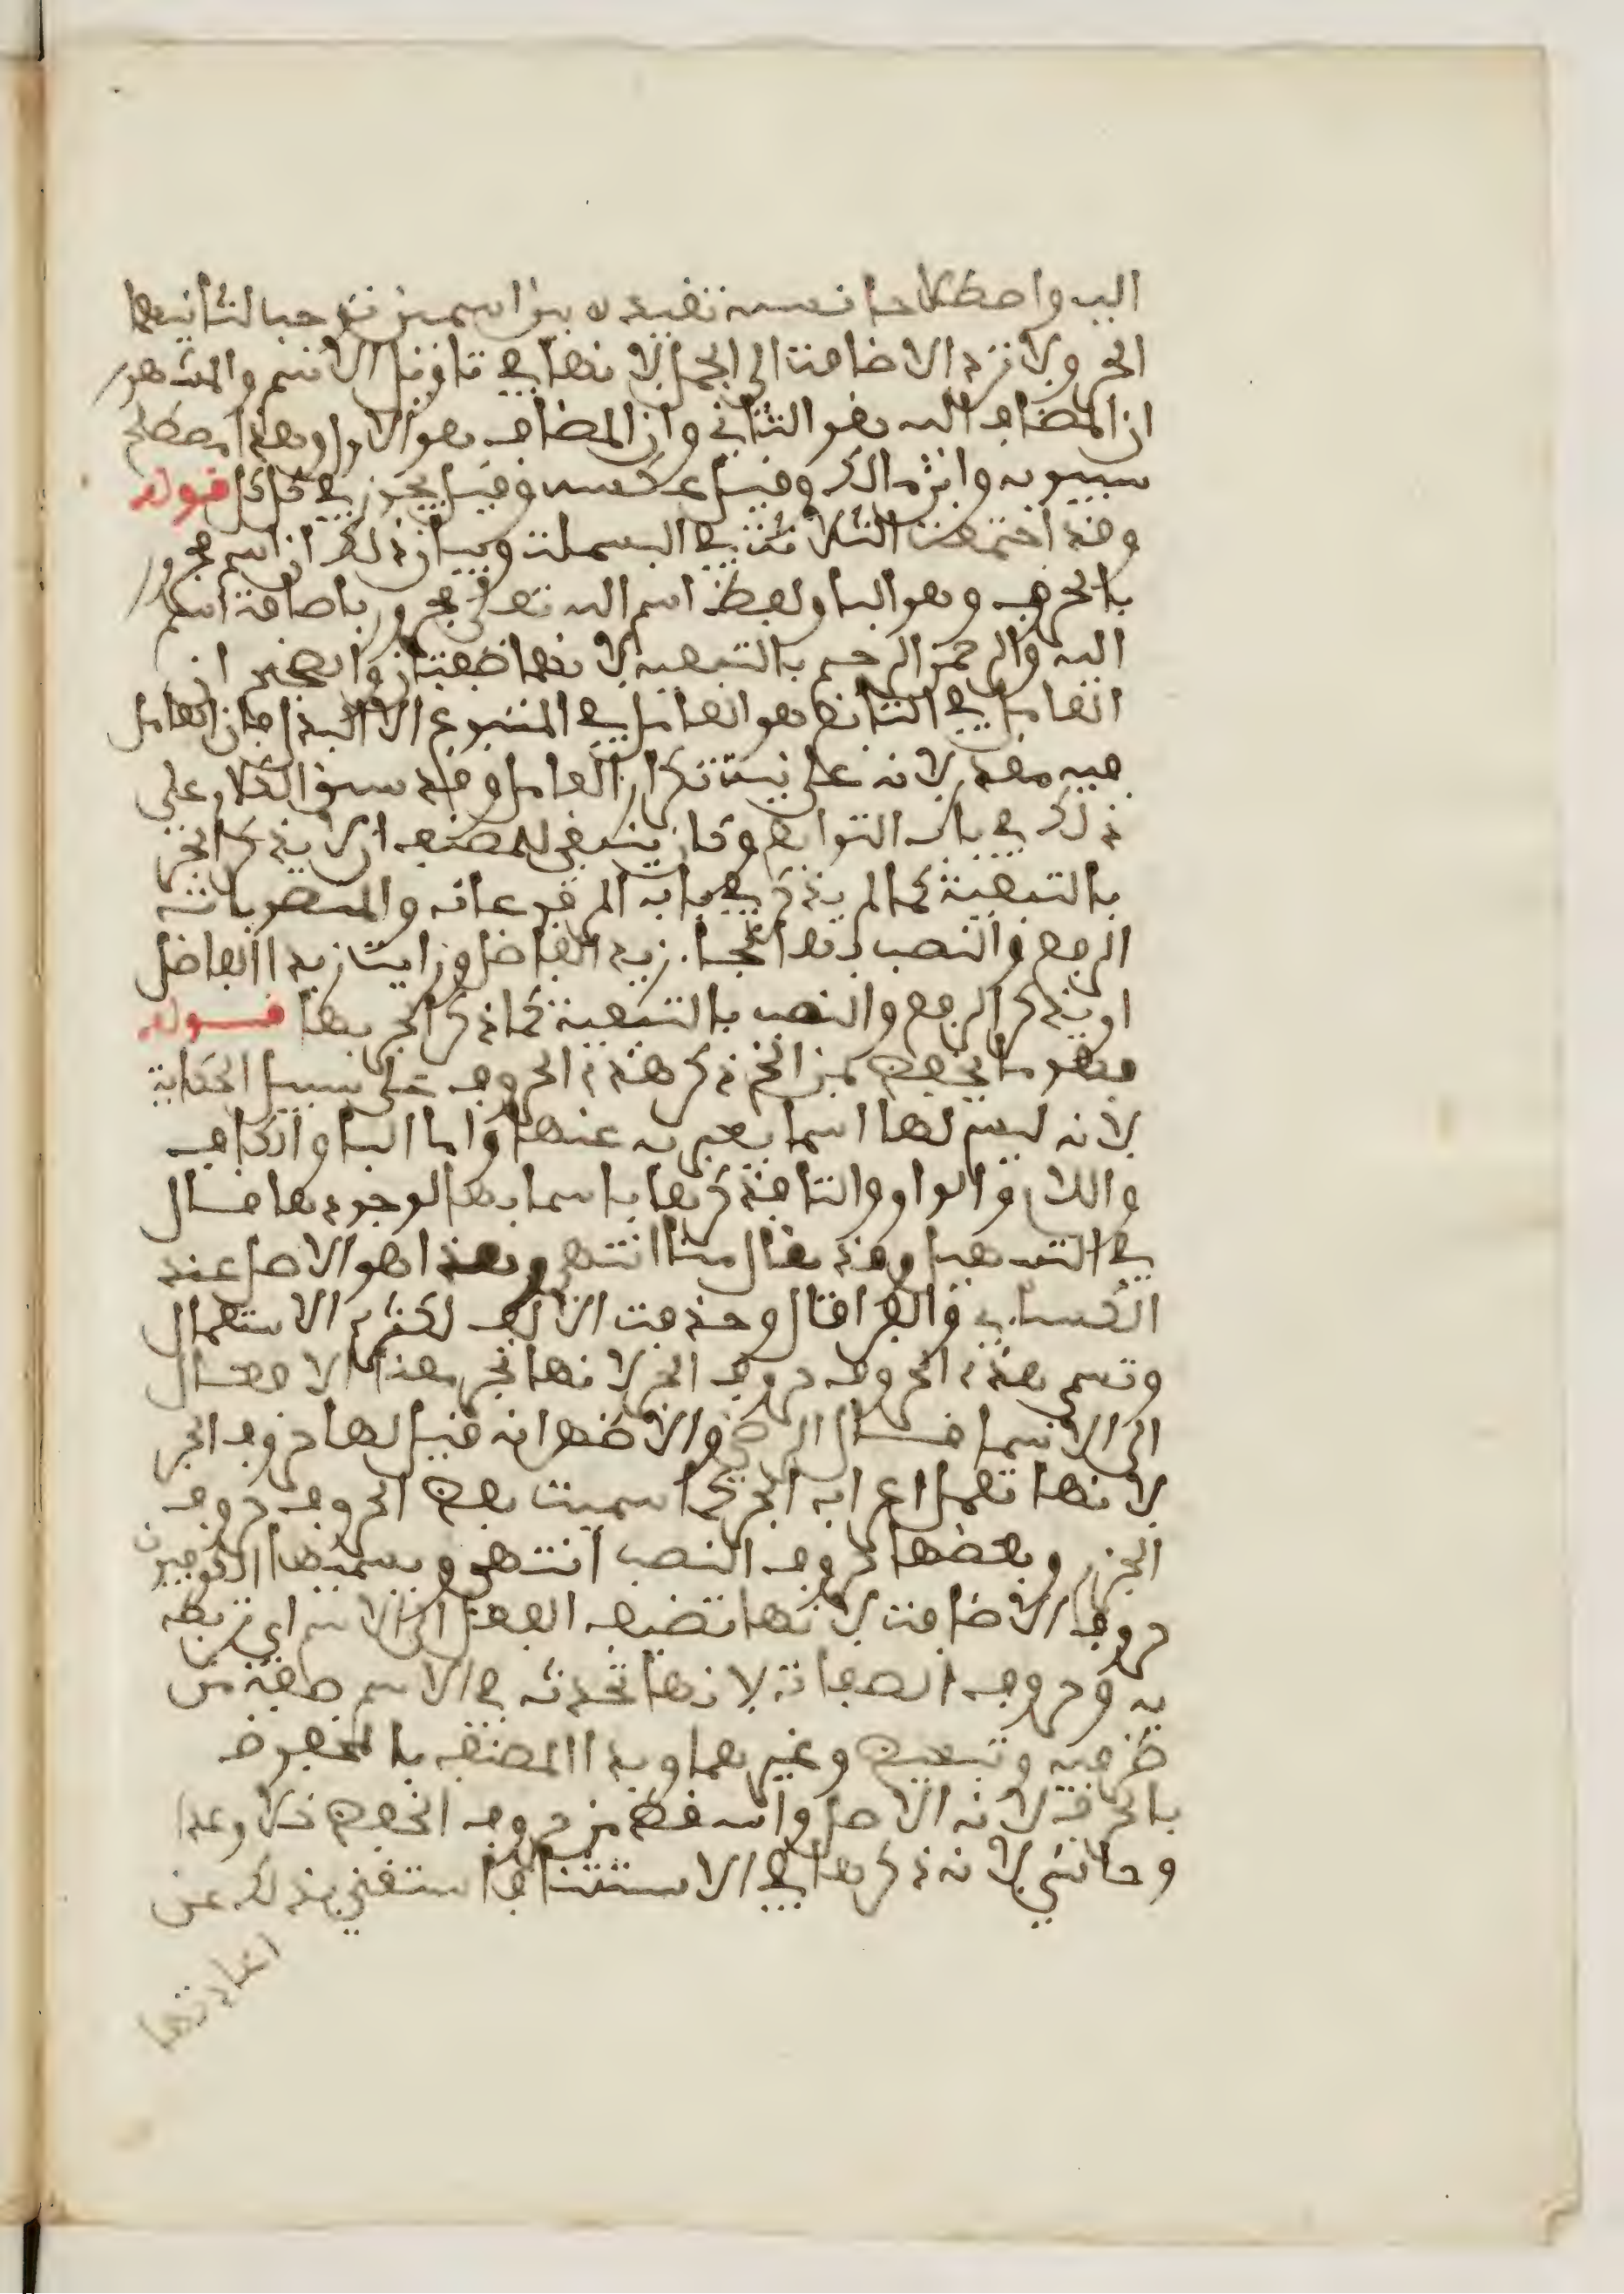 اليه واصطلاحا نسبة تقييدية بين اسمين توجب لثانيهما
الجر ولا ترد الاضافة الى الجمل لانها في تاويل الاسم والمشهور
ان المضاف اليه هو الثاني وان المضاف هو الاول وهذا مصطلح
سيبويه وابن مالك وقيل عكسه وقيل يجوز في كل كل قوله
وقد اجتمعت الثلاثة في البسملة وبيان ذلك ان اسم مجرور
بالحرف وهو البا ولفظ اسم الله تعلى مجرور باضافة اسم
اليه والرحمن الرحيم بالتبعية لانهما صفتان والصحيح ان
العامل في التابع هو العامل في المتبوع الا البدل فان العامل
فيه مقدر لانه على نية تكرار العامل وقد سبق الكلام على
ذلك في باب التوابع وكان ينبغي للمصنف ان لا يذكر الجر
بالتبعية كما لم يذكر في باب المرفوعات والمنصوبات
الرفع والنصب بها نحو جا زيد الفاضل ورايت زيدا الفاضل
او يذكر الرفع والنصب بالتبعية كما ذكر الجر بها قوله
فهو ما يخفض بمن الخ ذكر هذه الحروف على سبيل الحكاية
لانه ليس لها اسما يعبر به عنها واما البا والكاف
واللام والواو والتا فذكرها باسمايها لوجودها قال
في التسهيل وقد يقال منا انتهى وهذا هو الاصل عند
الكساي والفرا قال وحذفت الالف لكثرة الاستعمال
وتسمى هذه الحروف حروف الجر لانها تجر معنا الافعال
الى الاسما قال الرضي والاظهر انه قيل لها حروف الجر
لانها تعمل اعراب الجر كما سميت بعض الحروف حروف
الجزم وبعضها حروف النصب انتهى ويسميها الكوفيون
حروف الاضافة لانها تضيف الفعل الى الاسم اي تربطه
به وحروف الصفات لانها تحدث في الاسم صفة من
ظرفية وتبعيض وغيرهما وبدا المصنف بالمخفوض
بالحرف لانه الاصل واسقط من حروف الخفض خلا وعدا
وحاشى لانه ذكرها في الاستثنا فاستغنى بذلك عن
اعادتها